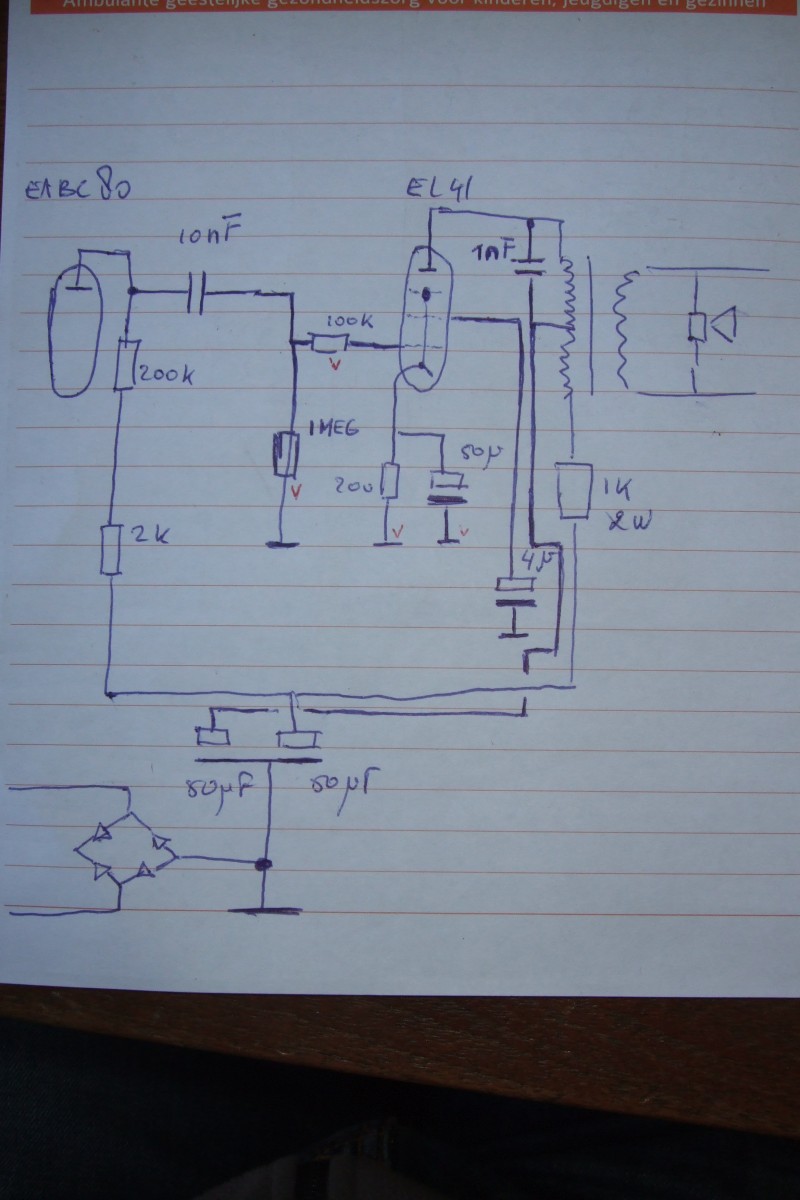 Ambulante geestelijke gezondheidszorg voor kinderen, jeugdigen en gezinnen
EABC80
EL41
10nF
1nF
100K
200K
1MEG
50µ
200
1K
2W
2K
4µ
50µF
50µF